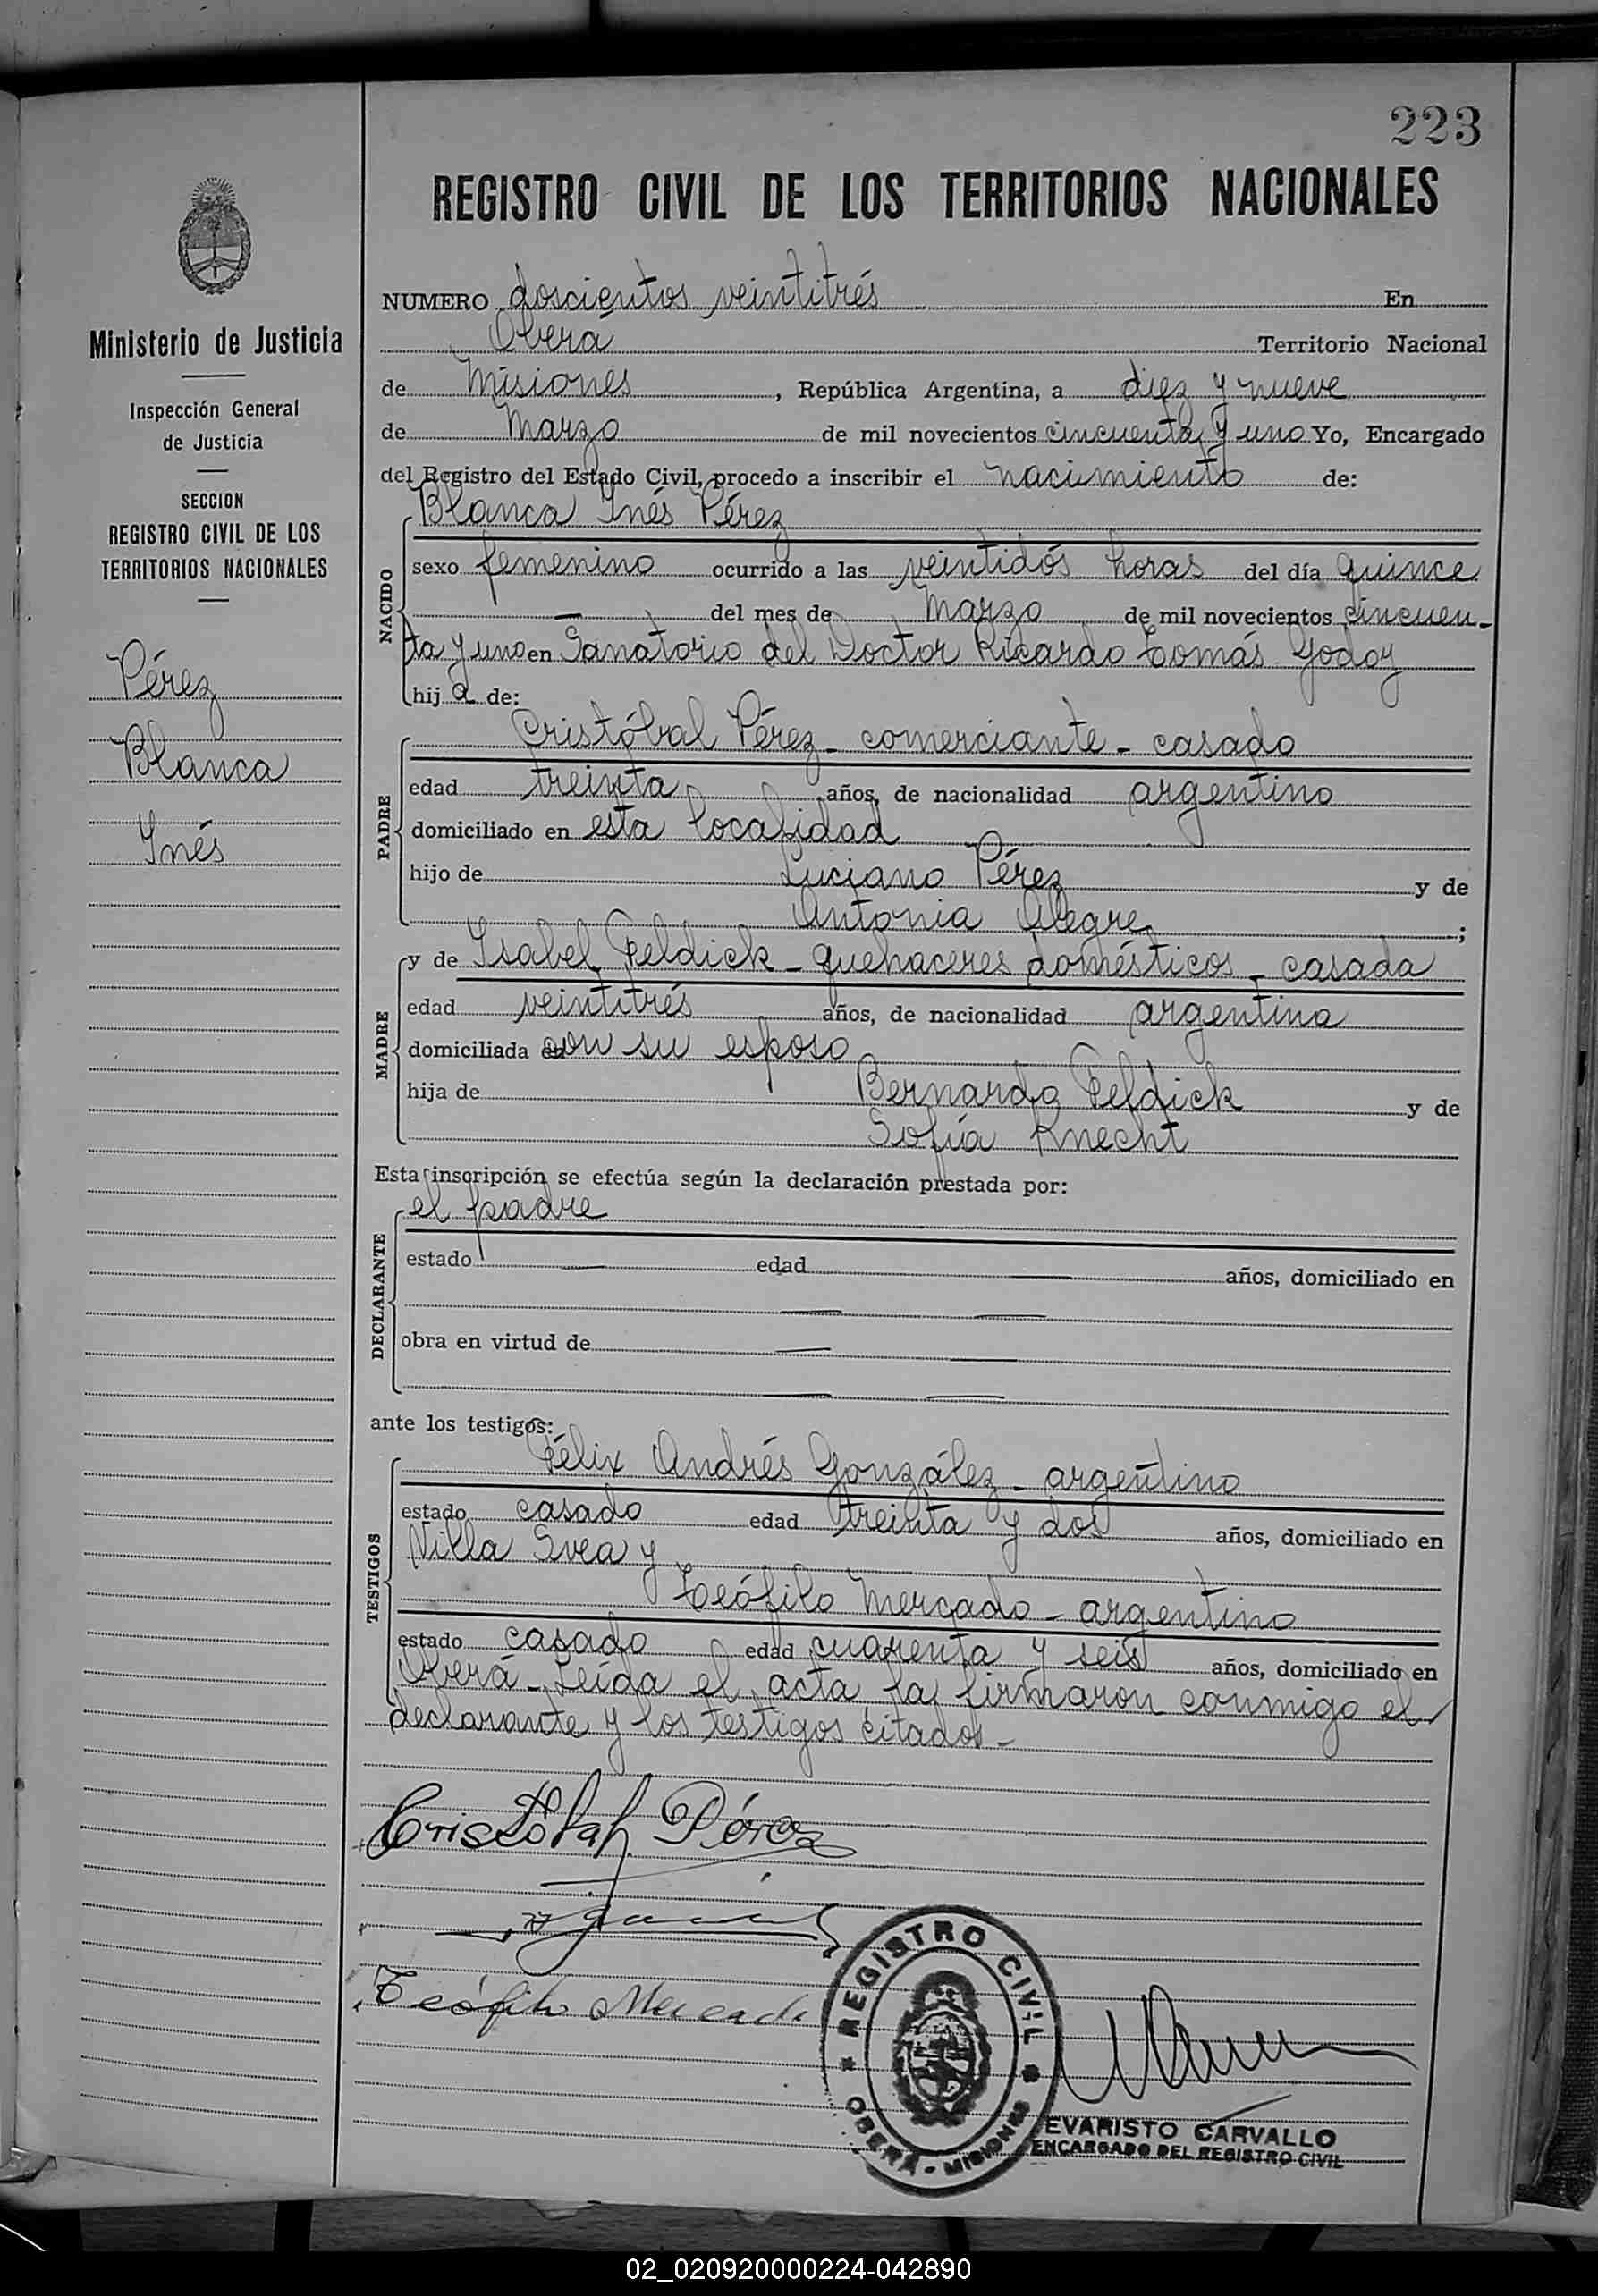 223
REGISTRO CIVIL DE LOS TERRITORIOS NACIONALES
Ministerio de Justicia
Inspección General
de Justicia
SECCION
REGISTRO CIVIL DE LOS
TERRITORIOS NACIONALES
Pérez
Blanca
Inés
NUMERO doscientos veintitrés En
Oberá Territorio Nacional
de Misiones, República Argentina, a diez y nueve
de Marzo de mil novecientos cincuenta y uno Yo, Encargado
del Registro del Estado Civil, procedo a inscribir el nacimiento de:
NACIDO
Blanca Inés Pérez
sexo femenino ocurrido a las veintidós horas del día quince
— del mes de Marzo de mil novecientos cincuen-
ta y uno en Sanatorio del Doctor Ricardo Tomás Godoy
hij a de:
PADRE
Cristóbal Pérez - comerciante - casado
edad treinta años, de nacionalidad argentino
domiciliado en esta localidad
hijo de Luciano Pérez y de
Antonia Alegre ;
MADRE
y de Isabel Feldick - quehaceres domésticos - casada
edad veintitrés años, de nacionalidad argentina
domiciliada con su esposo
hija de Bernardo Feldick y de
Sofía Knecht
Esta inscripción se efectúa según la declaración prestada por:
DECLARANTE
el padre
estado — edad — años, domiciliado en
— —
obra en virtud de — —
— —
ante los testigos:
TESTIGOS
Félix Andrés González - argentino
estado casado edad treinta y dos años, domiciliado en
Villa Svea y
Teófilo Mercado - argentino
estado casado edad cuarenta y seis años, domiciliado en
Oberá - Leída el acta la firmaron conmigo el
declarante y los testigos citados -
Cristóbal Pérez
Teófilo Mercado
REGISTRO CIVIL
OBERÁ - MISIONES
EVARISTO CARVALLO
ENCARGADO DEL REGISTRO CIVIL
02_020920000224-042890